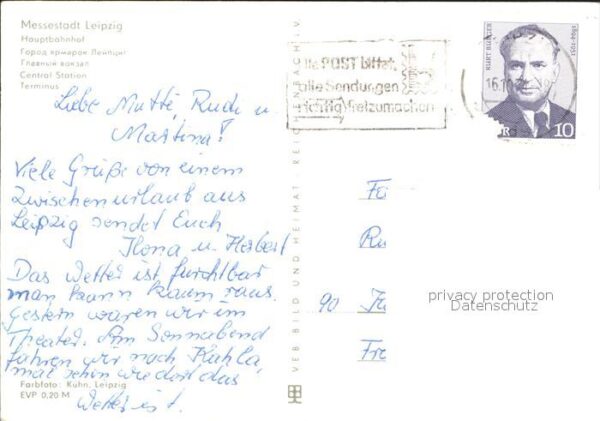 Messestadt Leipzig
Hauptbahnhof
Город ярмарок Лейпциг
Главный вокзал
Central Station
Terminus
Liebe Mutti, Rudi u.
Martina!
Viele Grüße von einem
Zwischenurlaub aus
Leipzig sendet Euch
Ilona u. Herbert
Das Wetter ist furchtbar
man kann kaum raus.
Gestern waren wir im
Theater. Am Sonnabend
fahren wir nach Kahla,
mal sehn wie dort das
Wetter ist.
Farbfoto: Kühn, Leipzig
EVP 0,20 M
VEB BILD UND HEIMAT, REICHENBACH I. V.
Die POST bittet,
alle Sendungen
richtig freizumachen
16.10
KURT BÜRGER
1894-1951
DDR 10
Fa
Ru
90
Fre
privacy protection
Datenschutz